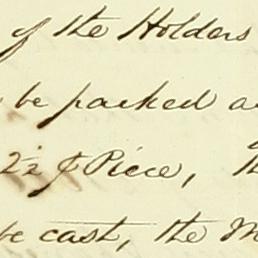 of the Holders
be packed a
2½ ₰ Piece, th
be cast, the M